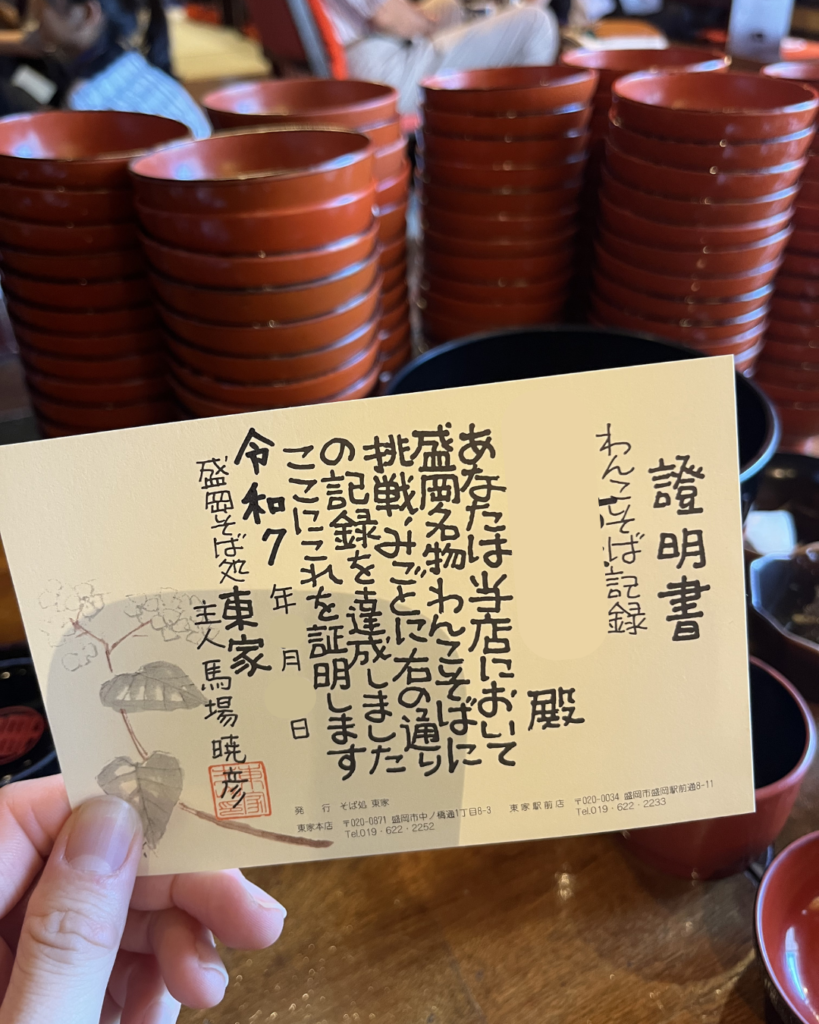 證明書
わんこそば記録
殿
あなたは当店において
盛岡名物わんこそばに
挑戦、みごとに右の通り
の記録を達成しました
ここにこれを証明します
令和7年 月 日
盛岡そば処 東家
主人 馬場 暁彦
発 行 そば処 東家
東家本店 〒020-0871 盛岡市中ノ橋通1丁目8-3
Tel.019・622・2252
東家駅前店 〒020-0034 盛岡市盛岡駅前通8-11
Tel.019・622・2233